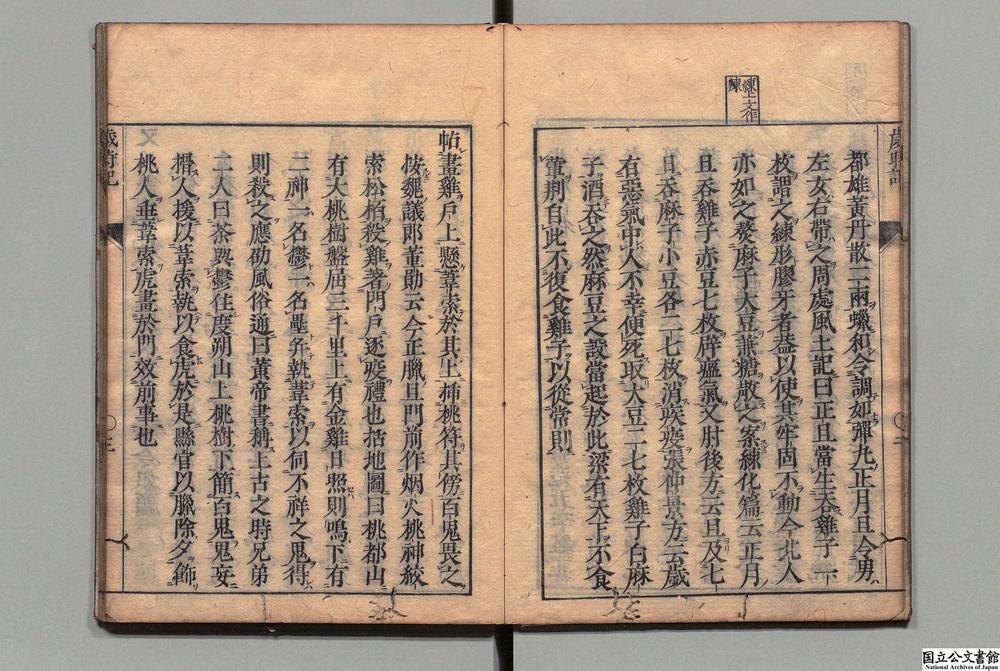 練上文作
煉
歲時記
都雄黃丹散二兩蠟和令調如彈丸正月旦令男
左女右帶之周處風土記曰正旦當生吞雞子一
枚謂之練形膠牙者蓋以使其牢固不動今北人
亦如之熬麻子大豆葉糖散之案練化篇云正月
旦吞雞子赤豆七枚辟瘟氣又肘後方云旦及七
日吞麻子小豆各二七枚消疾疫張仲景方云歲
有惡氣中人不幸便死取大豆二七枚雞子白麻
子酒吞之然麻豆之設當起於此梁有天下不食
葷荆自此不復食雞子以從常則
帖畫雞戶上懸葦索於其上揷桃符其傍百鬼畏之
按魏議郎董勛云今正臘旦門前作烟火桃神絞
索松栢殺雞著門戶逐疫禮也括地圖曰桃都山
有大桃樹盤屈三千里上有金雞日照則鳴下有
二神一名鬱一名壘幷執葦索以伺不祥之鬼得
則殺之應劭風俗通曰黃帝書稱上古之時兄弟
二人曰荼與鬱住度朔山上桃樹下簡百鬼鬼妄
搰人援以葦索執以食虎於是縣官以臘除夕飾
桃人垂葦索虎畫於門效前事也
歲時記
国立公文書館
National Archives of Japan